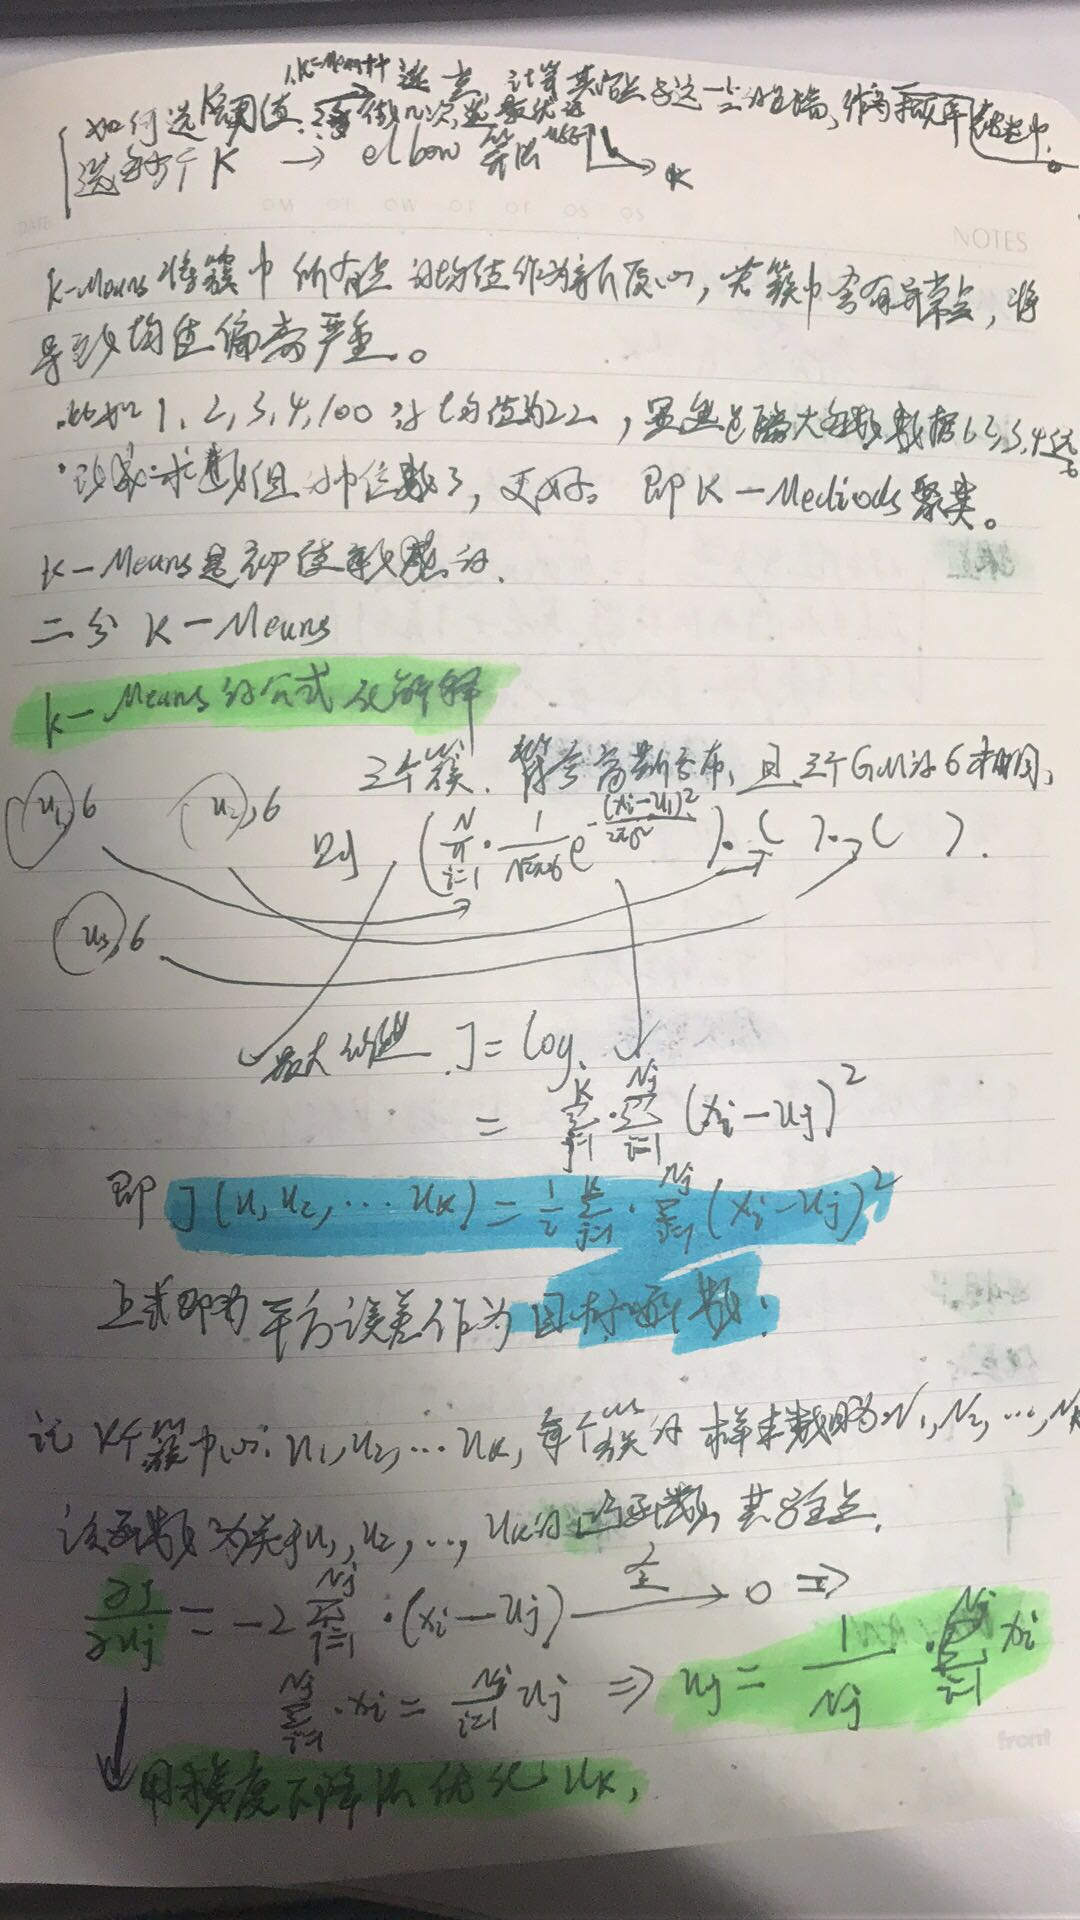 1. K-Means++ 选点, 计算其它点与这一点的距离, 作为概率
如何选K阈值, 做几次
选多少个K → elbow 算法 K
DATE NOTES
K-Means将簇中所有点的均值作为新质心, 若簇中含有异常点, 将
导致均值偏离严重。
比如 1, 2, 3, 4, 100 的均值为22, 显然距离大多数数据1,2,3,4远
改成求数组的中位数了, 更好。即K-Mediods聚类。
K-Means是初值敏感的.
二分 K-Means
K-Means的公式及解释
三个簇. 符合高斯分布, 且三个GM的σ相同,
u₁, σ u₂, σ
则 (∏_{i=1}^{N} · 1/√2πσ e^{-(xi-u₁)²/2πσ²}) · ( ) · ( ).
u₃, σ
最大似然 J = log
= Σ_{j=1}^{K} · Σ_{i=1}^{Nj} (xi - uj)²
即 J(u, u₂, ... uK) = 1/2 Σ_{j=1}^{K} · Σ_{i=1}^{Nj} (xi - uj)²
上式即为平方误差作为目标函数:
记 K个簇中心: u₁, u₂, ... uK, 每个簇的样本数目为N₁, N₂, ..., NK
该函数为关于u₁, u₂, ..., uK的凸函数, 其驻点,
∂J/∂uj = -2 Σ_{i=1}^{Nj} · (xi - uj) 令→ 0 ⇒
Σ_{i=1}^{Nj} · xi = Σ_{i=1}^{Nj} uj ⇒ uj = 1/Nj · Σ_{i=1}^{Nj} xi
front
用梯度下降法优化uK,